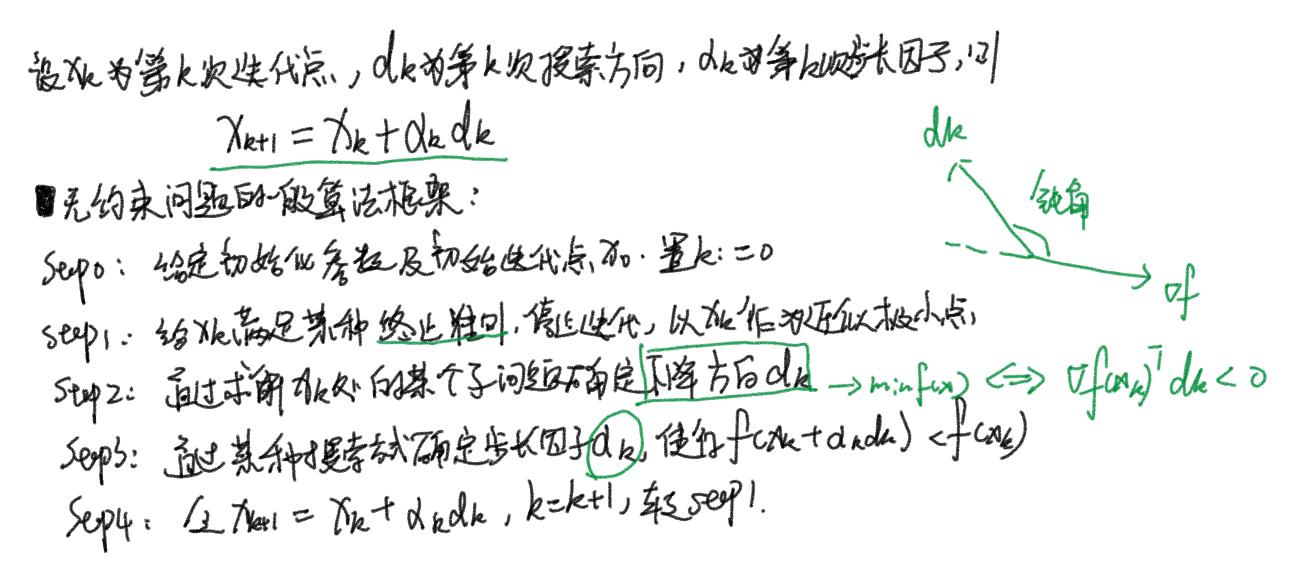 设xₖ为第k次迭代点，dₖ为第k次搜索方向，αₖ为第k次步长因子，则
xₖ₊₁ = xₖ + αₖdₖ
无约束问题的一般算法框架：
Step0：给定初始化参数及初始迭代点x₀. 置k:=0
step1：若xₖ满足某种终止准则，停止迭代，以xₖ作为近似极小点，
Step2：通过求解xₖ处的某个子问题确定下降方向dₖ → minf(x) ⟺ ∇f(xₖ)ᵀdₖ < 0
Step3：通过某种搜索方式确定步长因子αₖ，使得f(xₖ+αₖdₖ) < f(xₖ)
Step4：令xₖ₊₁ = xₖ + αₖdₖ，k=k+1，转step1.
dₖ
钝角
∇f